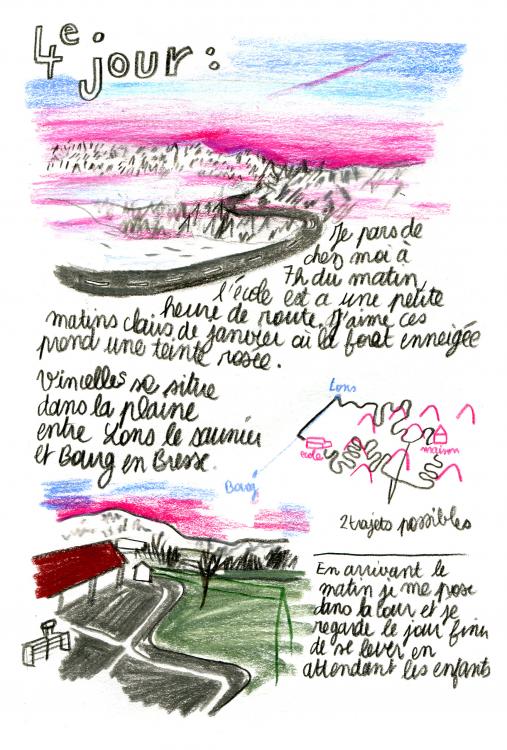 4e jour :
Je pars de
chez moi à
7h du matin,
l'école est a une petite
heure de route. J'aime ces
matins clairs de janvier où la foret enneigée
prend une teinte rosée.
Vincelles se situe
dans la plaine
entre Lons le saunier
et Bourg en Bresse.
Lons
école
maison
Bourg
2 trajets possibles
En arrivant le
matin je me pose
dans la cour et je
regarde le jour finir
de se lever en
attendant les enfants